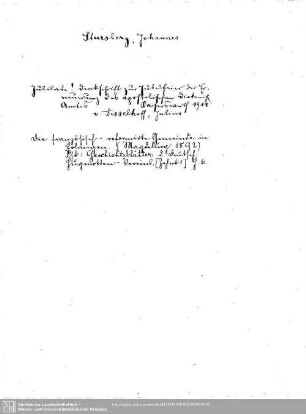 Stursberg, Johannes
Jubilate! Denkschrift zur Jubelfeier der Er-
neuerung des apostolischen Diakonissen
Amtes Kaiserswerth
v. Disselhoff, Julius
Die französisch-reformirte Gemeinde in
(Magdeburg 1892)
Geschichtsblätter d. Deutsch.
Hugenotten-Vereins. [Zehnt 1] H 6.
Sächsische Landesbibliothek -
Staats- und Universitätsbibliothek Dresden